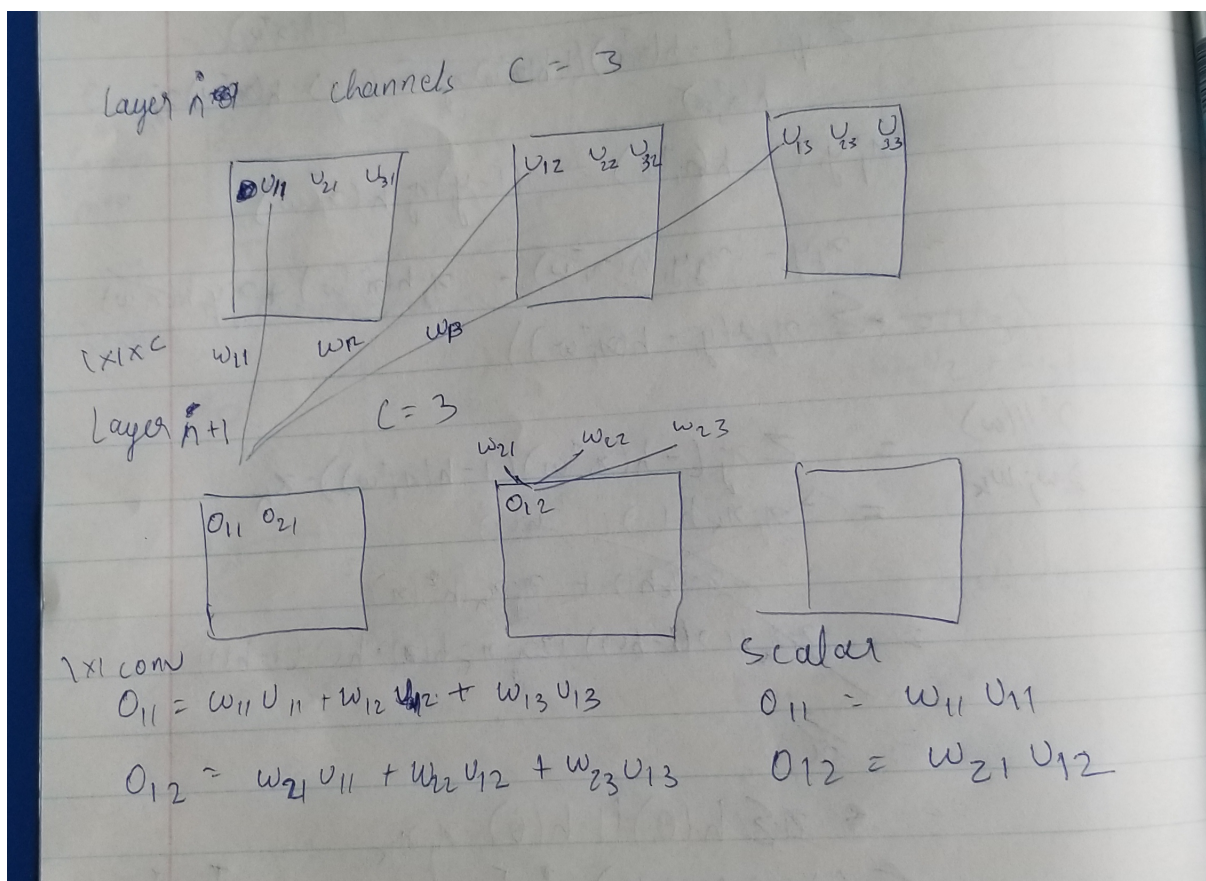 Layer n channels C = 3
U11 U21 U31 U12 U22 U32 U13 U23 U33
1x1xC w11 w12 w13
Layer n+1 C = 3
w21 w22 w23
O11 O21 O12
1x1 conv scalar
O11 = w11 U11 + w12 U12 + w13 U13 O11 = w11 U11
O12 = w21 U11 + w22 U12 + w23 U13 O12 = w21 U12